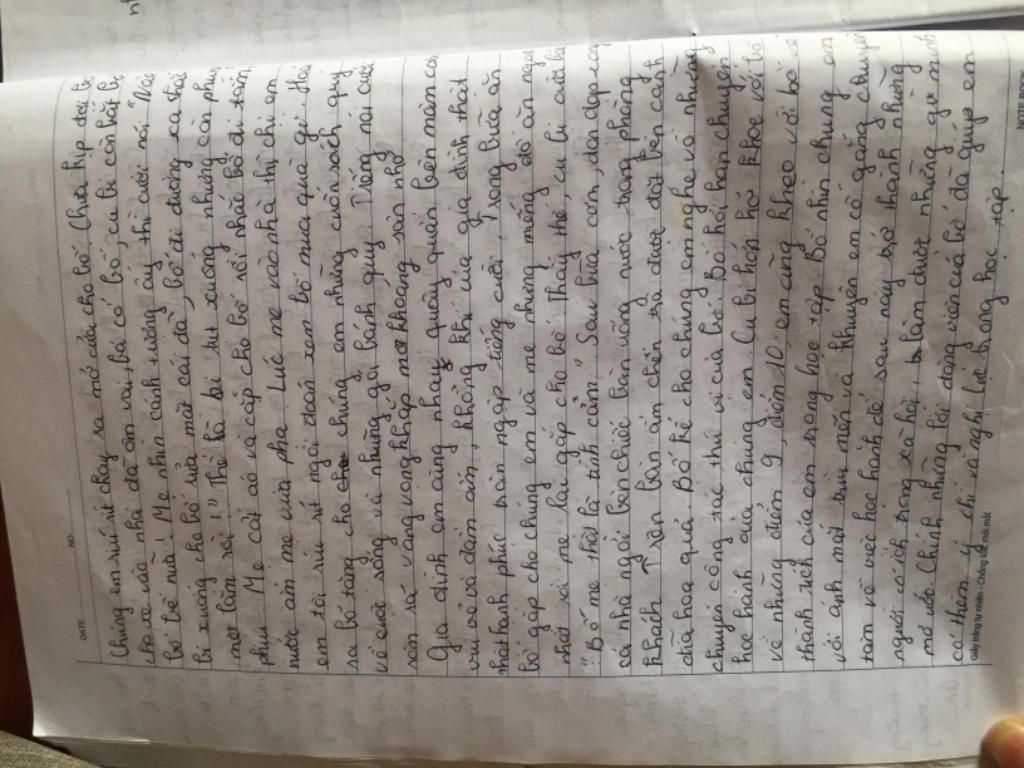 DATE NO.
Chúng em ríu rít chạy ra mở cửa cho bố. Chưa kịp đợi bố
cho xe vào nhà đã ôm vai, bá cổ bố, cu bi còn hất bố
bố bế nữa! Mẹ nhìn cảnh tượng ấy thì cười nói
bi xuống cho bố rửa mặt cái đã, bố đi đường xa
mệt lắm rồi!" Thế là bi tụt xuống nhưng còn phụng
phịu. Mẹ cất áo và cặp cho bố rồi nhắc bố đi tắm,
nước ấm mẹ vừa pha. Lúc mẹ vào nhà thì chị em
em tôi ríu rít ngồi đoán xem bố mua quà gì. Hoá
ra bố tặng cho chúng em những cuốn sách quý
về cuộc sống và những gói bánh quy. Tiếng nói cười
sôn sả vang vọng khắp khoảng sân nhỏ.
Gia đình em cùng nhau quây quần bên mâm cơm
vui vẻ và đầm ấm, không khí của gia đình thật
hạnh phúc tràn ngập tiếng cười. Trong bữa ăn
bố gắp cho chúng em và mẹ những miếng đồ ăn ngon
nhất rồi mẹ lại gắp cho bố. Thấy thế, cu bi cười bảo
"Bố mẹ thật là tình cảm". Sau bữa cơm, dọn dẹp xong
cả nhà ngồi bên chiếc bàn uống nước trong phòng
khách, trên bàn ấm chén trà được đặt bên cạnh
đĩa hoa quả. Bố kể cho chúng em nghe về những
chuyến công tác thú vị của bố. Bố hỏi han chuyện
học hành của chúng em. Cu bi hớn hở khoe với bố
về những điểm 9, điểm 10, em cũng kheo với bố về
thành tích của em trong học tập. Bố nhìn chúng em
với ánh mắt trìu mến và khuyên em cố gắng chuyên
tâm về việc học hành để sau này trở thành những
người có ích trong xã hội, làm được những gì mình
mơ ước. Chính những lời động viên của bố đã giúp em
có thêm ý chí và nghị lực trong học tập.
Giấy trắng tự nhiên - Chống lóa, mỏi mắt NOTE BOOK